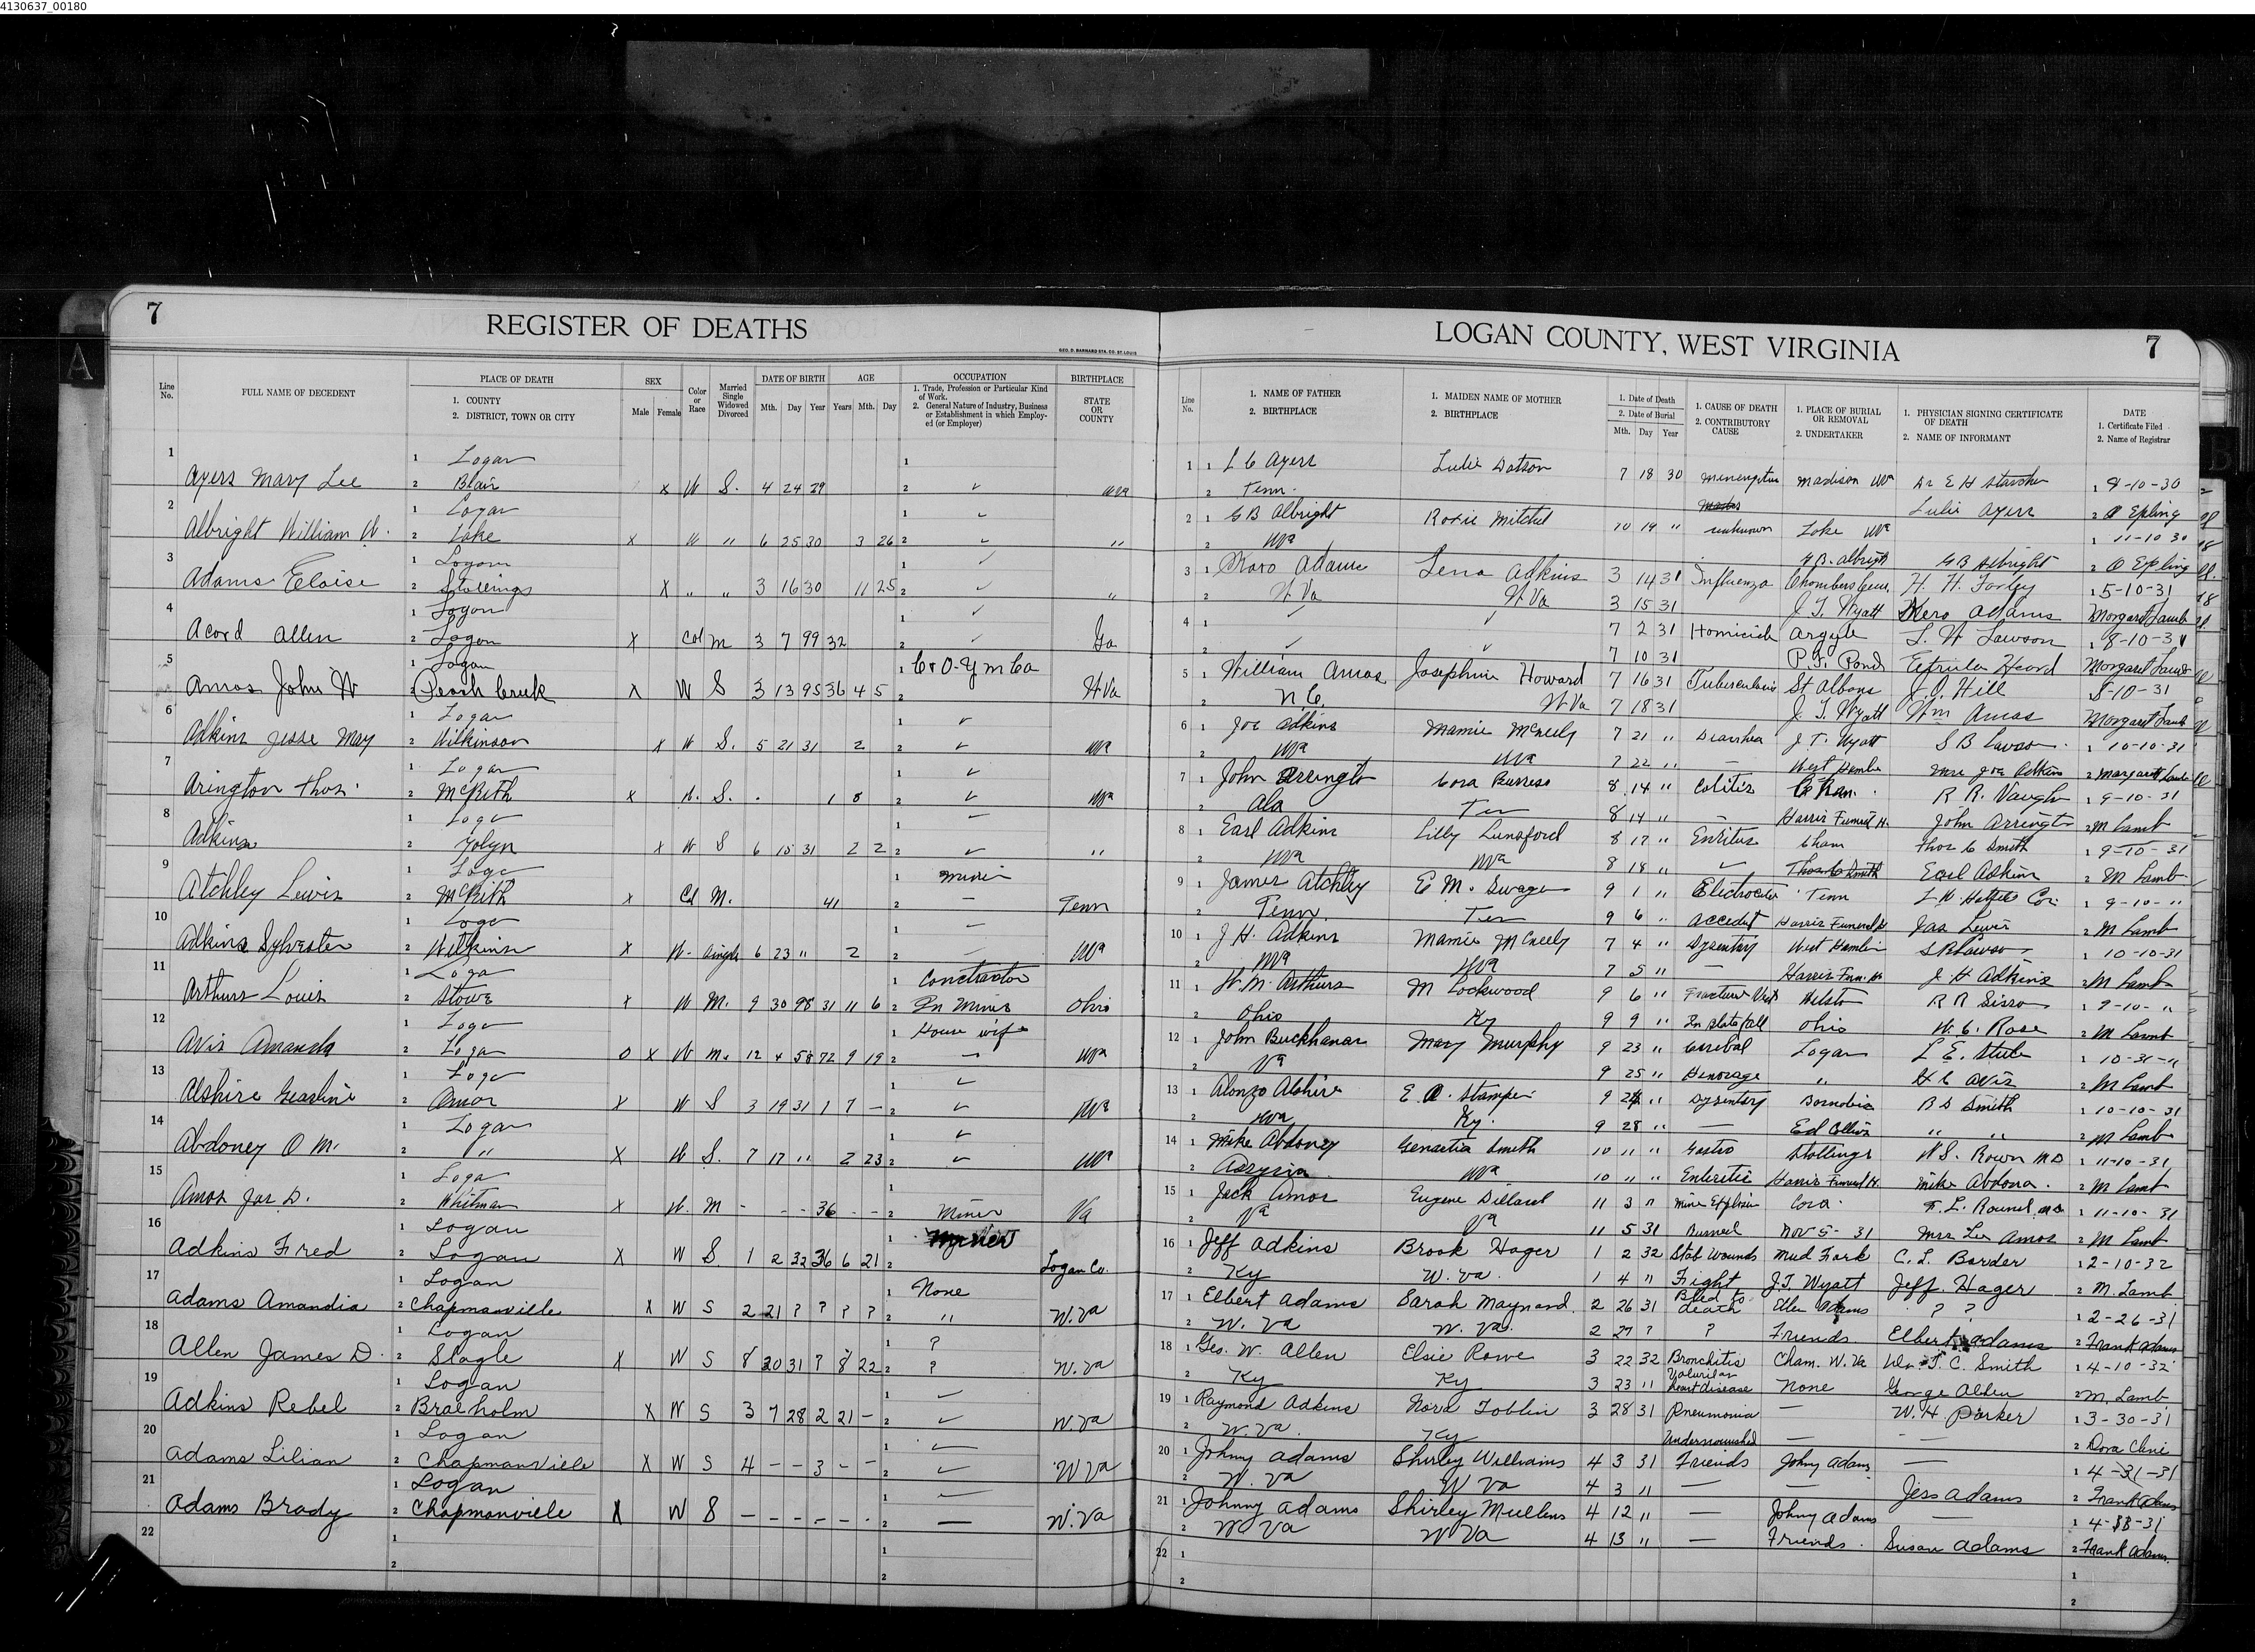 4130637_00180
7
REGISTER OF DEATHS
GEO. D. BARNARD STA. CO. ST. LOUIS
LOGAN COUNTY, WEST VIRGINIA
7
A
B
Line No. FULL NAME OF DECEDENT PLACE OF DEATH 1. COUNTY 2. DISTRICT, TOWN OR CITY SEX Male Female Color or Race Married Single Widowed Divorced DATE OF BIRTH Mth. Day Year AGE Years Mth. Day OCCUPATION 1. Trade, Profession or Particular Kind of Work. 2. General Nature of Industry, Business or Establishment in which Employed (or Employer) BIRTHPLACE STATE OR COUNTY
Line No. 1. NAME OF FATHER 2. BIRTHPLACE 1. MAIDEN NAME OF MOTHER 2. BIRTHPLACE 1. Date of Death 2. Date of Burial Mth. Day Year 1. CAUSE OF DEATH 2. CONTRIBUTORY CAUSE 1. PLACE OF BURIAL OR REMOVAL 2. UNDERTAKER 1. PHYSICIAN SIGNING CERTIFICATE OF DEATH 2. NAME OF INFORMANT DATE 1. Certificate Filed 2. Name of Registrar
1 1 Logan 1
Ayers Mary Lee 2 Blair x W S. 4 24 29 2 ✓ WVa
2 1 Logan 1 ✓
Albright William W. 2 Lake x W " 6 25 30 3 26 2 ✓ "
3 1 Logan 1 ✓
Adams Eloise 2 Stollings x " " 3 16 30 11 25 2 ✓ "
4 1 Logan 1 ✓
Acord Allen 2 Logan x Col m 3 7 99 32 2 ✓ Ga
5 1 Logan 1 C & O-Y m Ca
Amos John W 2 Peach Creek x W S 3 13 95 36 4 5 2 W Va
6 1 Logan 1 ✓
Adkins Jesse May 2 Wilkinson x W S. 5 21 31 2 2 ✓ WVa
7 1 Logan 1 ✓
Arington Thos. 2 McBeth x W. S. 1 8 2 ✓ WVa
8 1 Logan 1
Adkins 2 Yolyn x W S 6 15 31 2 2 2 ✓ "
9 1 Logan 1 miner
Atchley Lewis 2 McBeth x Col M. 41 2 - Tenn
10 1 Logan 1 -
Adkins Sylvester 2 Wilkinson x W- single 6 23 " 2 2 WVa
11 1 Logan 1 Contractor
Arthurs Louis 2 Stowe x W M. 9 30 98 31 11 6 2 In Mines Ohio
12 1 Logan 1 House wife
Avis Amanda 2 Logan x W m. 12 4 58 72 9 19 2 - WVa
13 1 Logan 1 ✓
2 Amar x W S 3 19 31 1 7 - 2 ✓ WVa
14 1 Logan 1 ✓
Abdoney O M. 2 " x W S. 7 17 " 2 23 2 ✓ WVa
15 1 Logan 1
Amos Jas D. 2 Whitman x W. M - - - 36 - - 2 Miner Va
16 1 Logan 1
Adkins Fred 2 Logan X W S 1 2 32 36 6 21 2 Logan Co.
17 1 Logan 1 None
Adams Amandia 2 Chapmanville X W S 2 21 ? ? ? ? 2 " W.Va
18 1 Logan 1 ?
Allen James D. 2 Slagle X W S 8 20 31 ? 8 22 2 ? W.Va
19 1 Logan 1 -
Adkins Rebel 2 Braeholm X W S 3 7 28 2 21 - 2 ✓ W.Va
20 1 Logan 1 -
Adams Lilian 2 Chapmanville X W S 4 - - 3 - - 2 ✓ W Va
21 1 Logan 1 -
Adams Brady 2 Chapmanville X W S - - - - - - 2 - W.Va
22 1 1
2 2
1 1 L C Ayers Lulie Dotson 7 18 30 Madison WVa Dr E H Starcher 1 9-10-30
2 Tenn. Lulie Ayers 2 O Epling
2 1 G B Albright Roxie Mitchel 10 19 " unknown Lake WVa 1 11-10 30
2 WVa G B. Albright G B Albright 2 O Epling
3 1 Adams Lena Adkins 3 14 31 Influenza Chambers H. H. Farley 1 5-10-31
2 W Va W Va 3 15 31 J. T. Wyatt Adams Margaret Lamb
4 1 ✓ ✓ 7 2 31 Homicide Argyle L. W Lawson 1 8-10-31
2 ✓ ✓ 7 10 31 P. J. Pond Heard Margaret Lamb
5 1 William Amos Josephine Howard 7 16 31 Tuberculosis St Albans J. O. Hill 8-10-31
2 N.C. W Va 7 18 31 J. T. Wyatt Wm Amos Margaret Lamb
6 1 Joe Adkins Mamie McNeely 7 21 " Diarrhea J. T. Wyatt S B Lawson 1 10-10-31
2 WVa WVa 7 22 " - West Hamlin Mrs Joe Adkins 2 Margaret Lamb
7 1 John Arrington Cora Burress 8 14 " Colitis R R. Vaughn 1 9-10-31
2 Ala Ten 8 14 " - Harris Funeral H. John Arrington 2 M Lamb
8 1 Earl Adkins Lilly Lunsford 8 17 " Cham Thos C Smith 1 9-10-31
2 WVa WVa 8 18 " ✓ Thos C Smith Earl Adkins 2 M Lamb
9 1 James Atchley E M. Swager 9 1 " Tenn 1 9-10-"
2 Tenn. Ten 9 6 " Accedet Harris Funeral H Jas Lewis 2 M Lamb
10 1 J H. Adkins Mamie McNeely 7 4 " Dysentery West Hamlin S B Lawson 1 10-10-31
2 WVa WVa 7 5 " - Harris Fun. H. J. H Adkins 2 M Lamb
11 1 W. M. Arthurs M Lockwood 9 6 " Fracture Welston R R Sisson 1 9-10-"
2 Ohio Ky 9 9 " In slate fall Ohio W. C. Rose 2 M Lamb
12 1 John Buckhanan Mary Murphy 9 23 " Logan L E. Steele 1 10-31-"
2 Va 9 25 " " H C Avis 2 M Lamb
13 1 Alonzo Alshire E. Q. Stamper 9 " Dysentery B D Smith 1 10-10-31
2 WVa Ky. 9 28 " - Ed Collins " " 2 M Lamb
14 1 Mike Abdoney Smith 10 11 " Gastro Stollings W S. Rowen MD 1 11-10-31
2 WVa 10 11 " Harris Funeral H. Mike Abdona. 2 M Lamb
15 1 Jack Amos Eugene Dillard 11 3 " Mine Explosion Cora 1 11-10-31
2 Va Va 11 5 31 Burned Nov 5-31 Mrs Lee Amos 2 M Lamb
16 1 Jeff Adkins Brook Hager 1 2 32 Stab Wounds Mud Fork C. L. Barder 2-10-32
2 Ky W. Va. 1 4 " Fight J. T. Wyatt Jeff Hager 2 M. Lamb
17 1 Elbert Adams Sarah Maynard. 2 26 31 Bled to death Ellen Adams ? ? 1 2-26-31
2 W. Va W. Va. 2 27 ? ? Friends Elbert Adams 2 Frank Adams
18 1 Geo. W. Allen Elsie Rowe 3 22 32 Bronchitis Cham. W. Va Dr. T. C. Smith 1 4-10-32
2 Ky Ky 3 23 " heart disease None George Allen 2 M. Lamb
19 1 Raymond Adkins Nora Toblin 3 28 31 Pneumonia - W. H. Parker 1 3-30-31
2 W. Va. Ky Undernourished - - - 2 Dora Cline
20 1 Johny Adams Shirley Williams 4 3 31 Friends Johny Adams - 1 4-31-31
2 W. Va W Va 4 3 " - - Jess Adams 2 Frank Adams
21 1 Johnny Adams Shirley Mullens 4 12 " - Johny Adams - 1
2 W Va W Va 4 13 " - Friends. Susan Adams 2 Frank Adams.
22 1 1
2 2